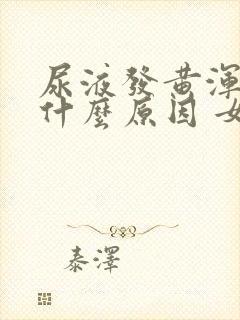 尿液發黃渾
什麼原因 女
泰澤